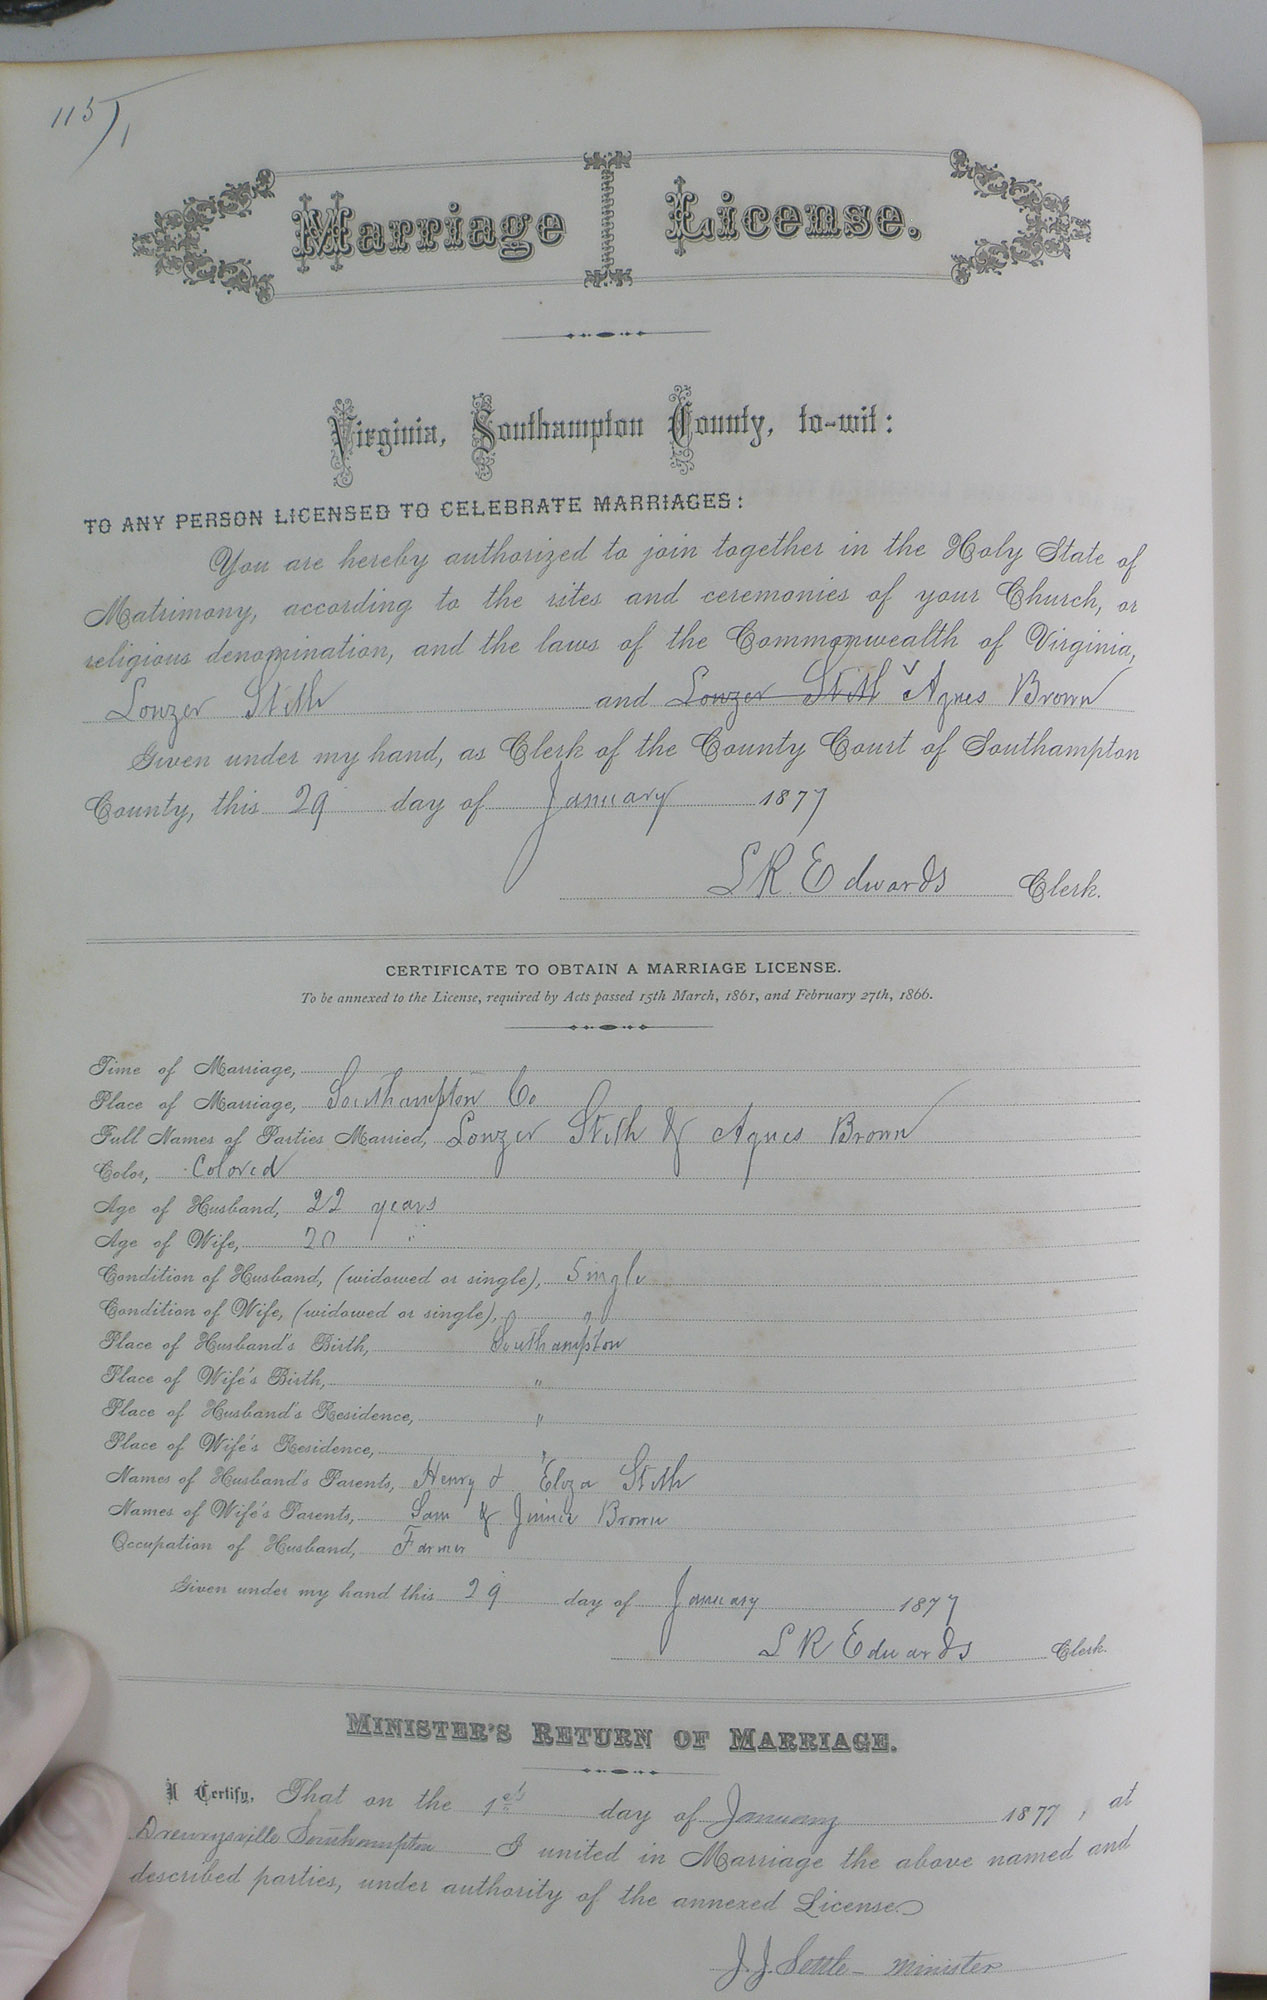 115/1
Marriage License.
Virginia, Southampton County, to-wit:
TO ANY PERSON LICENSED TO CELEBRATE MARRIAGES:
You are hereby authorized to join together in the Holy State of
Matrimony, according to the rites and ceremonies of your Church, or
religious denomination, and the laws of the Commonwealth of Virginia,
Lowzer Stith and Lowzer Stith ˅ Agnes Brown
Given under my hand, as Clerk of the County Court of Southampton
County, this 29 day of January 1877
L R Edwards Clerk.
CERTIFICATE TO OBTAIN A MARRIAGE LICENSE.
To be annexed to the License, required by Acts passed 15th March, 1861, and February 27th, 1866.
Time of Marriage,
Place of Marriage, Southampton Co
Full Names of Parties Married, Lowzer Stith & Agnes Brown
Color, Colored
Age of Husband, 22 years
Age of Wife, 20 "
Condition of Husband, (widowed or single), Single
Condition of Wife, (widowed or single), "
Place of Husband's Birth, Southampton
Place of Wife's Birth, "
Place of Husband's Residence, "
Place of Wife's Residence, "
Names of Husband's Parents, Henry & Eliza Stith
Names of Wife's Parents, Sam & Jinnie Brown
Occupation of Husband, Farmer
Given under my hand this 29 day of January 1877
L R Edwards Clerk.
MINISTER'S RETURN OF MARRIAGE.
I Certify, That on the 1st day of January 1877, at
Drewrysville Southampton I united in Marriage the above named and
described parties, under authority of the annexed License.
J. J. Settle - minister